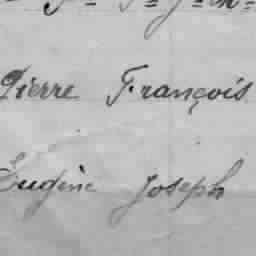 Pierre François
Eugène Joseph